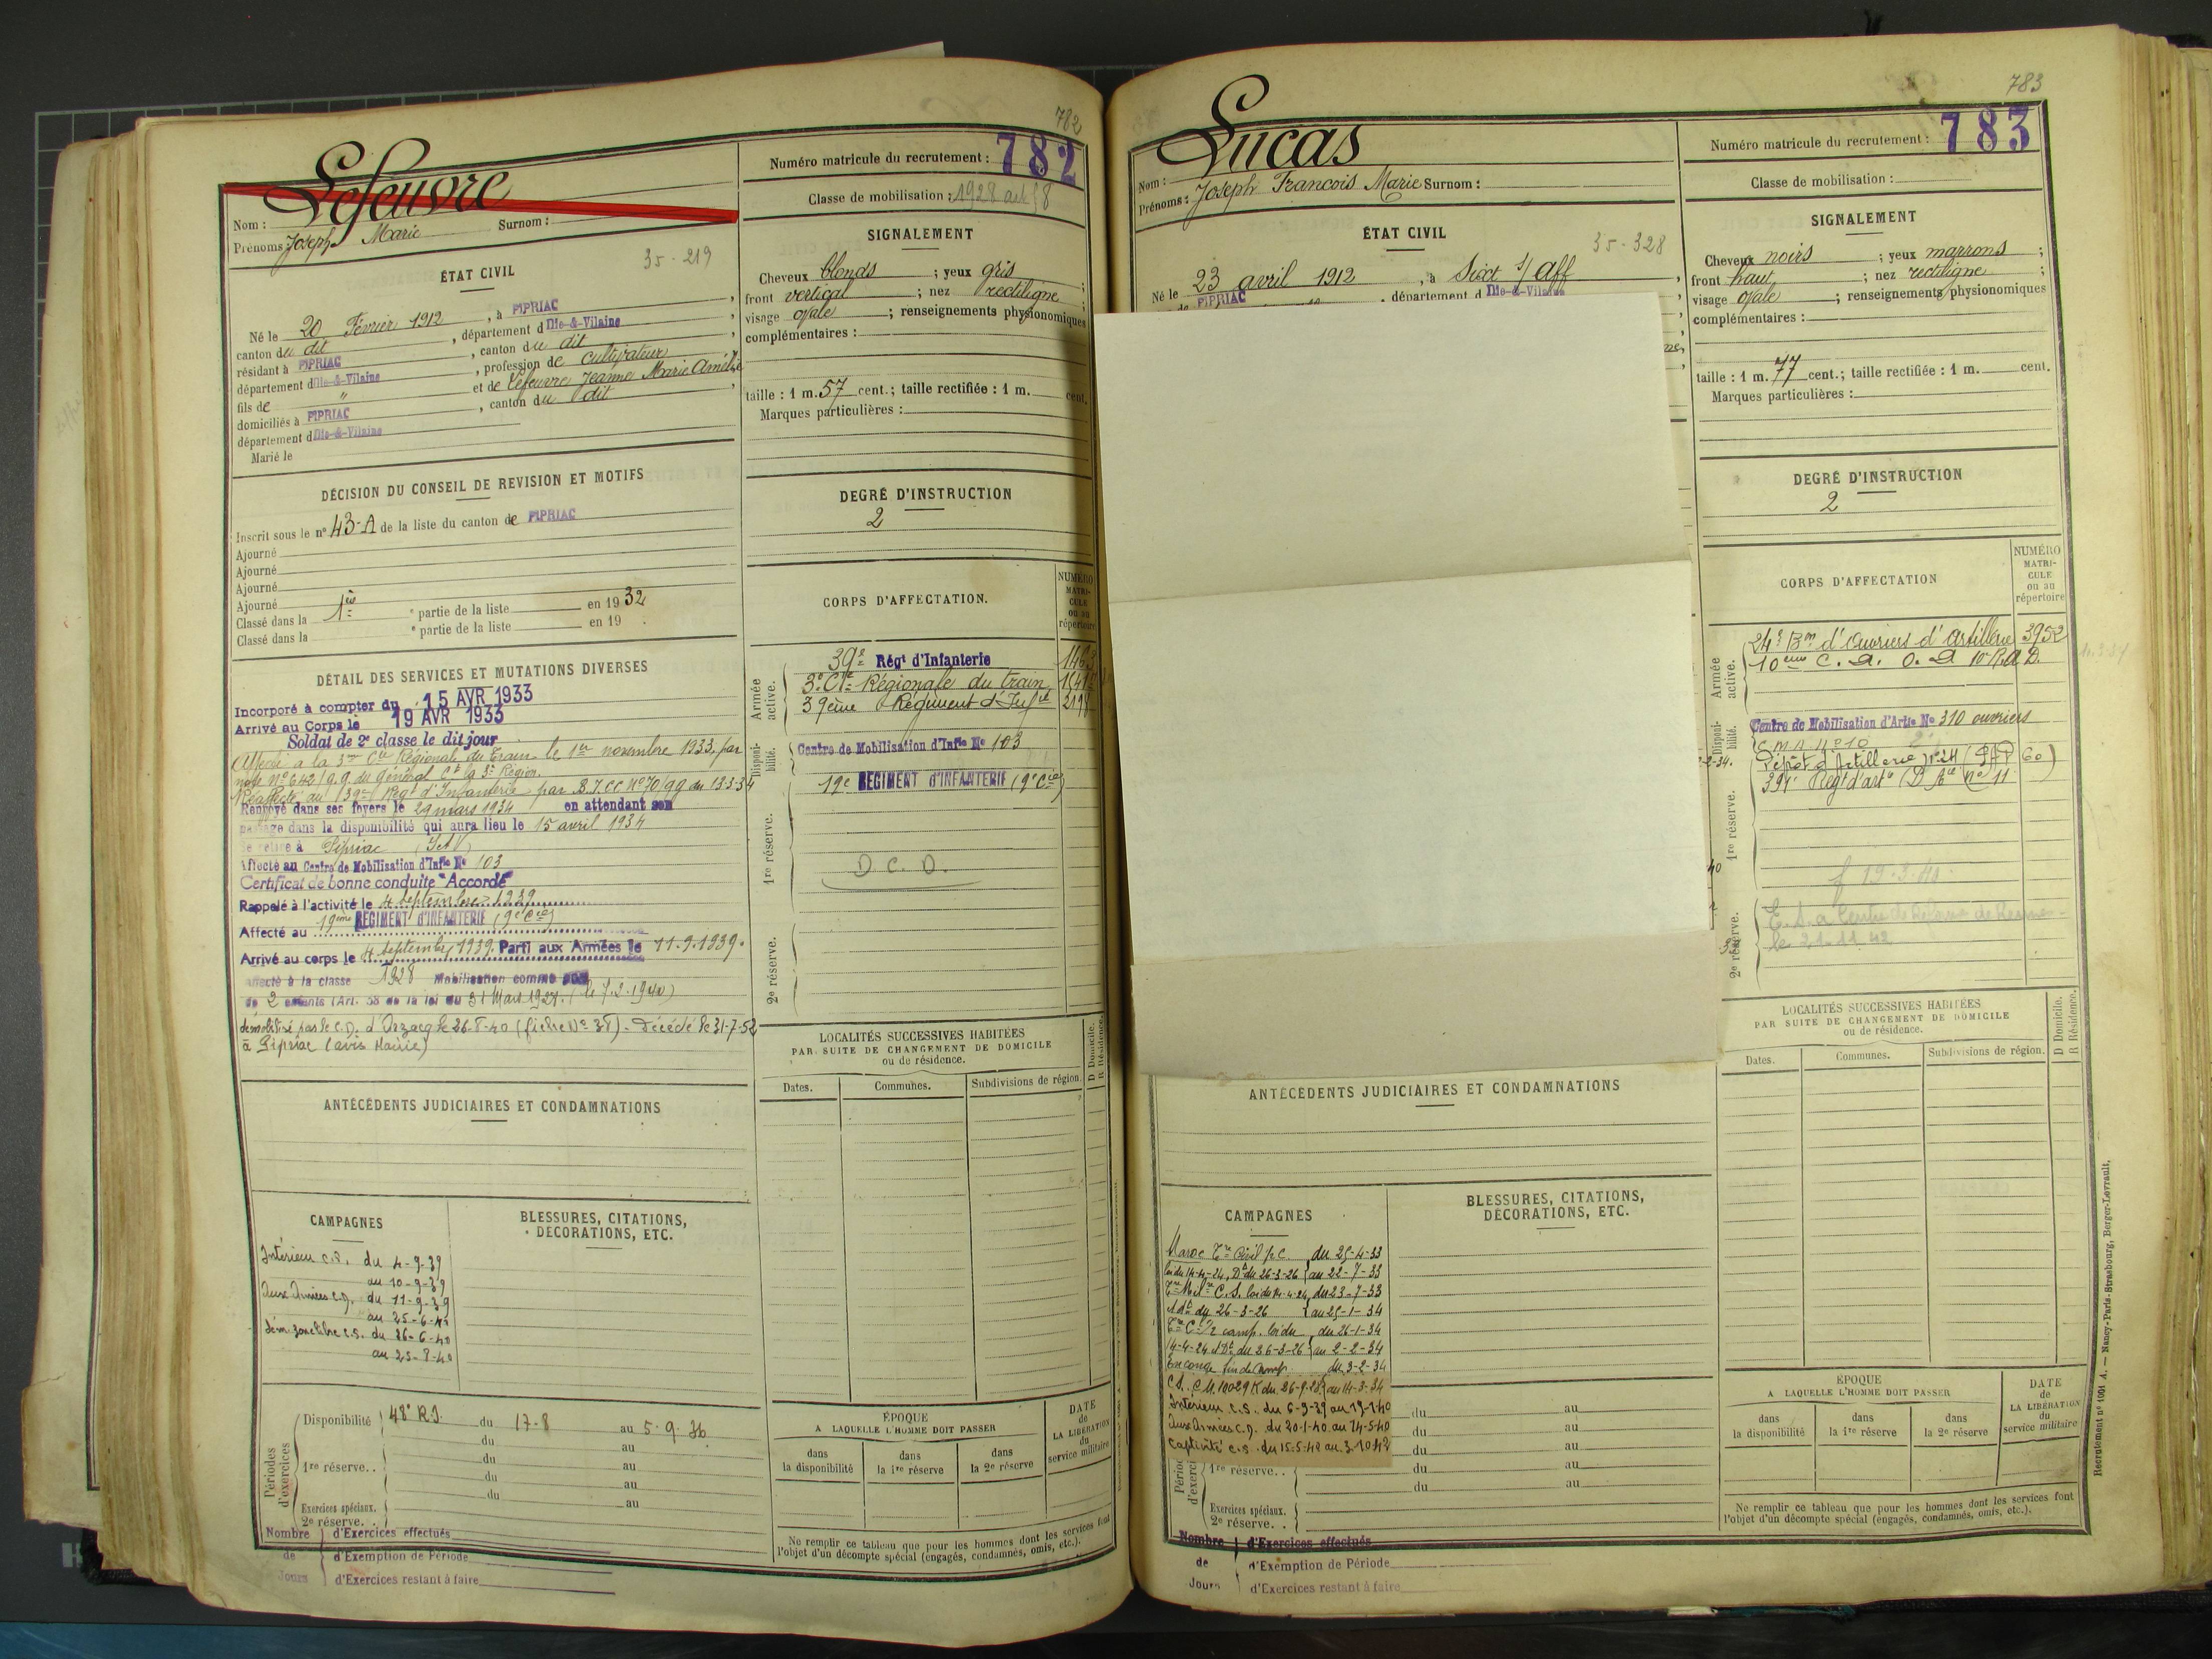 782
Lefeuvre
Nom :
Prénoms : Joseph Marie Surnom :
Numéro matricule du recrutement : 782
Classe de mobilisation : 1928 art 58
ÉTAT CIVIL
35-219
Né le 20 Février 1912, à PIPRIAC,
canton du dit, département d Ille-&-Vilaine,
résidant à PIPRIAC, canton du dit
département d Ille-&-Vilaine, profession de cultivateur
fils de " et de Lefeuvre Jeanne Marie Amélie
domiciliés à PIPRIAC, canton du dit,
département d Ille-&-Vilaine
Marié le
SIGNALEMENT
Cheveux blonds ; yeux gris ;
front vertical ; nez rectiligne ;
visage ovale ; renseignements physionomiques
complémentaires :
taille : 1 m. 57 cent.; taille rectifiée : 1 m. cent.
Marques particulières :
DÉCISION DU CONSEIL DE REVISION ET MOTIFS
Inscrit sous le n° 43-A de la liste du canton de PIPRIAC
Ajourné
Ajourné
Ajourné
Ajourné
Classé dans la 1ère e partie de la liste en 1932
Classé dans la e partie de la liste en 19 .
DEGRÉ D'INSTRUCTION
2
DÉTAIL DES SERVICES ET MUTATIONS DIVERSES
Incorporé à compter du 15 AVR 1933
Arrivé au Corps le 19 AVR 1933
Soldat de 2e classe le dit jour
Affecté à la 3me Cie Régionale du Train le 1er novembre 1933, par
note N° 642/g.g. du Général Ct la 3e Région.
Réaffecté au 39me Régt d'Infanterie par B.T.CC N° 70/gg du 13-3-34
Renvoyé dans ses foyers le 29 mars 1934 en attendant son
passage dans la disponibilité qui aura lieu le 15 avril 1934
Se retire à Pipriac (I et V)
Affecté au Centre de Mobilisation d'Infie N° 103
Certificat de bonne conduite "Accordé"
Rappelé à l'activité le 4 septembre 1939
Affecté au 19eme REGIMENT D'INFANTERIE (9e Cie)
Arrivé au corps le 4 septembre 1939. Parti aux Armées le 11.9.1939.
Affecté à la classe 1928 Mobilisation comme père
de 2 enfants (Art. 58 de la loi du 31 Mars 1928. (le 7.2.1940)
démobilisé par le C.D. d'Arzacq le 26-8-40 (fiche N° 38). Décédé le 31-7-52
à Pipriac (avis Mairie)
CORPS D'AFFECTATION.
NUMÉRO MATRICULE ou au répertoire
Armée active.
39e Régt d'Infanterie 1463
3e Cie Régionale du train
39ème Régiment d'Infie
Disponibilité.
Centre de Mobilisation d'Infie N° 103
19e REGIMENT D'INFANTERIE (9e Cie)
1re réserve.
D C. D.
2e réserve.
LOCALITÉS SUCCESSIVES HABITÉES
PAR SUITE DE CHANGEMENT DE DOMICILE
ou de résidence.
D Domicile. R Résidence.
Dates. Communes. Subdivisions de région.
ANTÉCÉDENTS JUDICIAIRES ET CONDAMNATIONS
CAMPAGNES
Intérieur C.S. du 4-9-39
au 10-9-39
Aux Armées C.D. du 11-9-39
au 25-6-40
dém zone libre C.S. du 26-6-40
au 25-8-40
BLESSURES, CITATIONS,
DÉCORATIONS, ETC.
Périodes d'exercices
Disponibilité 48e R.I. du 17-8 au 5-9-36
du au
1re réserve. . du au
du au
du au
Exercices spéciaux.
2e réserve. .
Nombre de Jours
d'Exercices effectués
d'Exemption de Période
d'Exercices restant à faire
ÉPOQUE
A LAQUELLE L'HOMME DOIT PASSER
dans la disponibilité
dans la 1re réserve
dans la 2e réserve
DATE de LA LIBÉRATION du service militaire
Ne remplir ce tableau que pour les hommes dont les services font
l'objet d'un décompte spécial (engagés, condamnés, omis, etc.).
783
Lucas
Nom :
Prénoms : Joseph Francois Marie Surnom :
Numéro matricule du recrutement : 783
Classe de mobilisation :
ÉTAT CIVIL
35-328
Né le 23 avril 1912, à Sixt s/ Aff,
PIPRIAC, département d Ille-&-Vilaine
SIGNALEMENT
Cheveux noirs ; yeux marrons ;
front haut ; nez rectiligne ;
visage ovale ; renseignements physionomiques
complémentaires :
taille : 1 m. 77 cent.; taille rectifiée : 1 m. cent.
Marques particulières :
DEGRÉ D'INSTRUCTION
2
CORPS D'AFFECTATION
NUMÉRO MATRICULE ou au répertoire
Armée active.
24e Bon d'Ouvriers d'artillerie 3952
10ème C. A. O. A 10e R.A.D.
Disponibilité.
Centre de Mobilisation d'Artie N° 310 ouvriers
C M A N° 10
Dépôt d'Artillerie N° 24 (PAD 60)
391e Régt d'artie (D Aie n° 11
1re réserve.
f 12-3-40
le 21-11-42
2e réserve.
LOCALITÉS SUCCESSIVES HABITÉES
PAR SUITE DE CHANGEMENT DE DOMICILE
ou de résidence.
D Domicile. R Résidence.
Dates. Communes. Subdivisions de région.
ANTÉCÉDENTS JUDICIAIRES ET CONDAMNATIONS
CAMPAGNES
Maroc Tre Civil 1/2 C. du 25-4-33
loi du 14-4-24, Dt du 26-3-26 au 22-7-33
Tre Milre C.S. loi du 14-4-24, du 23-7-33
et Dt du 26-3-26 au 25-1-34
Tre C 1/2 camp. loi du du 26-1-34
14-4-24 et Dt du 26-3-26 au 2-2-34
En congé fin de camp. du 3-2-34
C.S. C.M. 10029 K du 26-9-28 au 14-3-34
Intérieur C.S. du 6-9-39 au 19-1-40
Aux Armées C.D. du 20-1-40 au 14-5-40
Captivité C.S. du 15-5-40 au 3-10-42
BLESSURES, CITATIONS,
DÉCORATIONS, ETC.
du au
du au
du au
1re réserve. . du au
du au
Exercices spéciaux.
2e réserve. .
Nombre de Jours
d'Exercices effectués
d'Exemption de Période
d'Exercices restant à faire
ÉPOQUE
A LAQUELLE L'HOMME DOIT PASSER
dans la disponibilité
dans la 1re réserve
dans la 2e réserve
DATE de LA LIBÉRATION du service militaire
Ne remplir ce tableau que pour les hommes dont les services font
l'objet d'un décompte spécial (engagés, condamnés, omis, etc.).
Recrutement n° 1001 A. — Nancy-Paris-Strasbourg, Berger-Levrault.